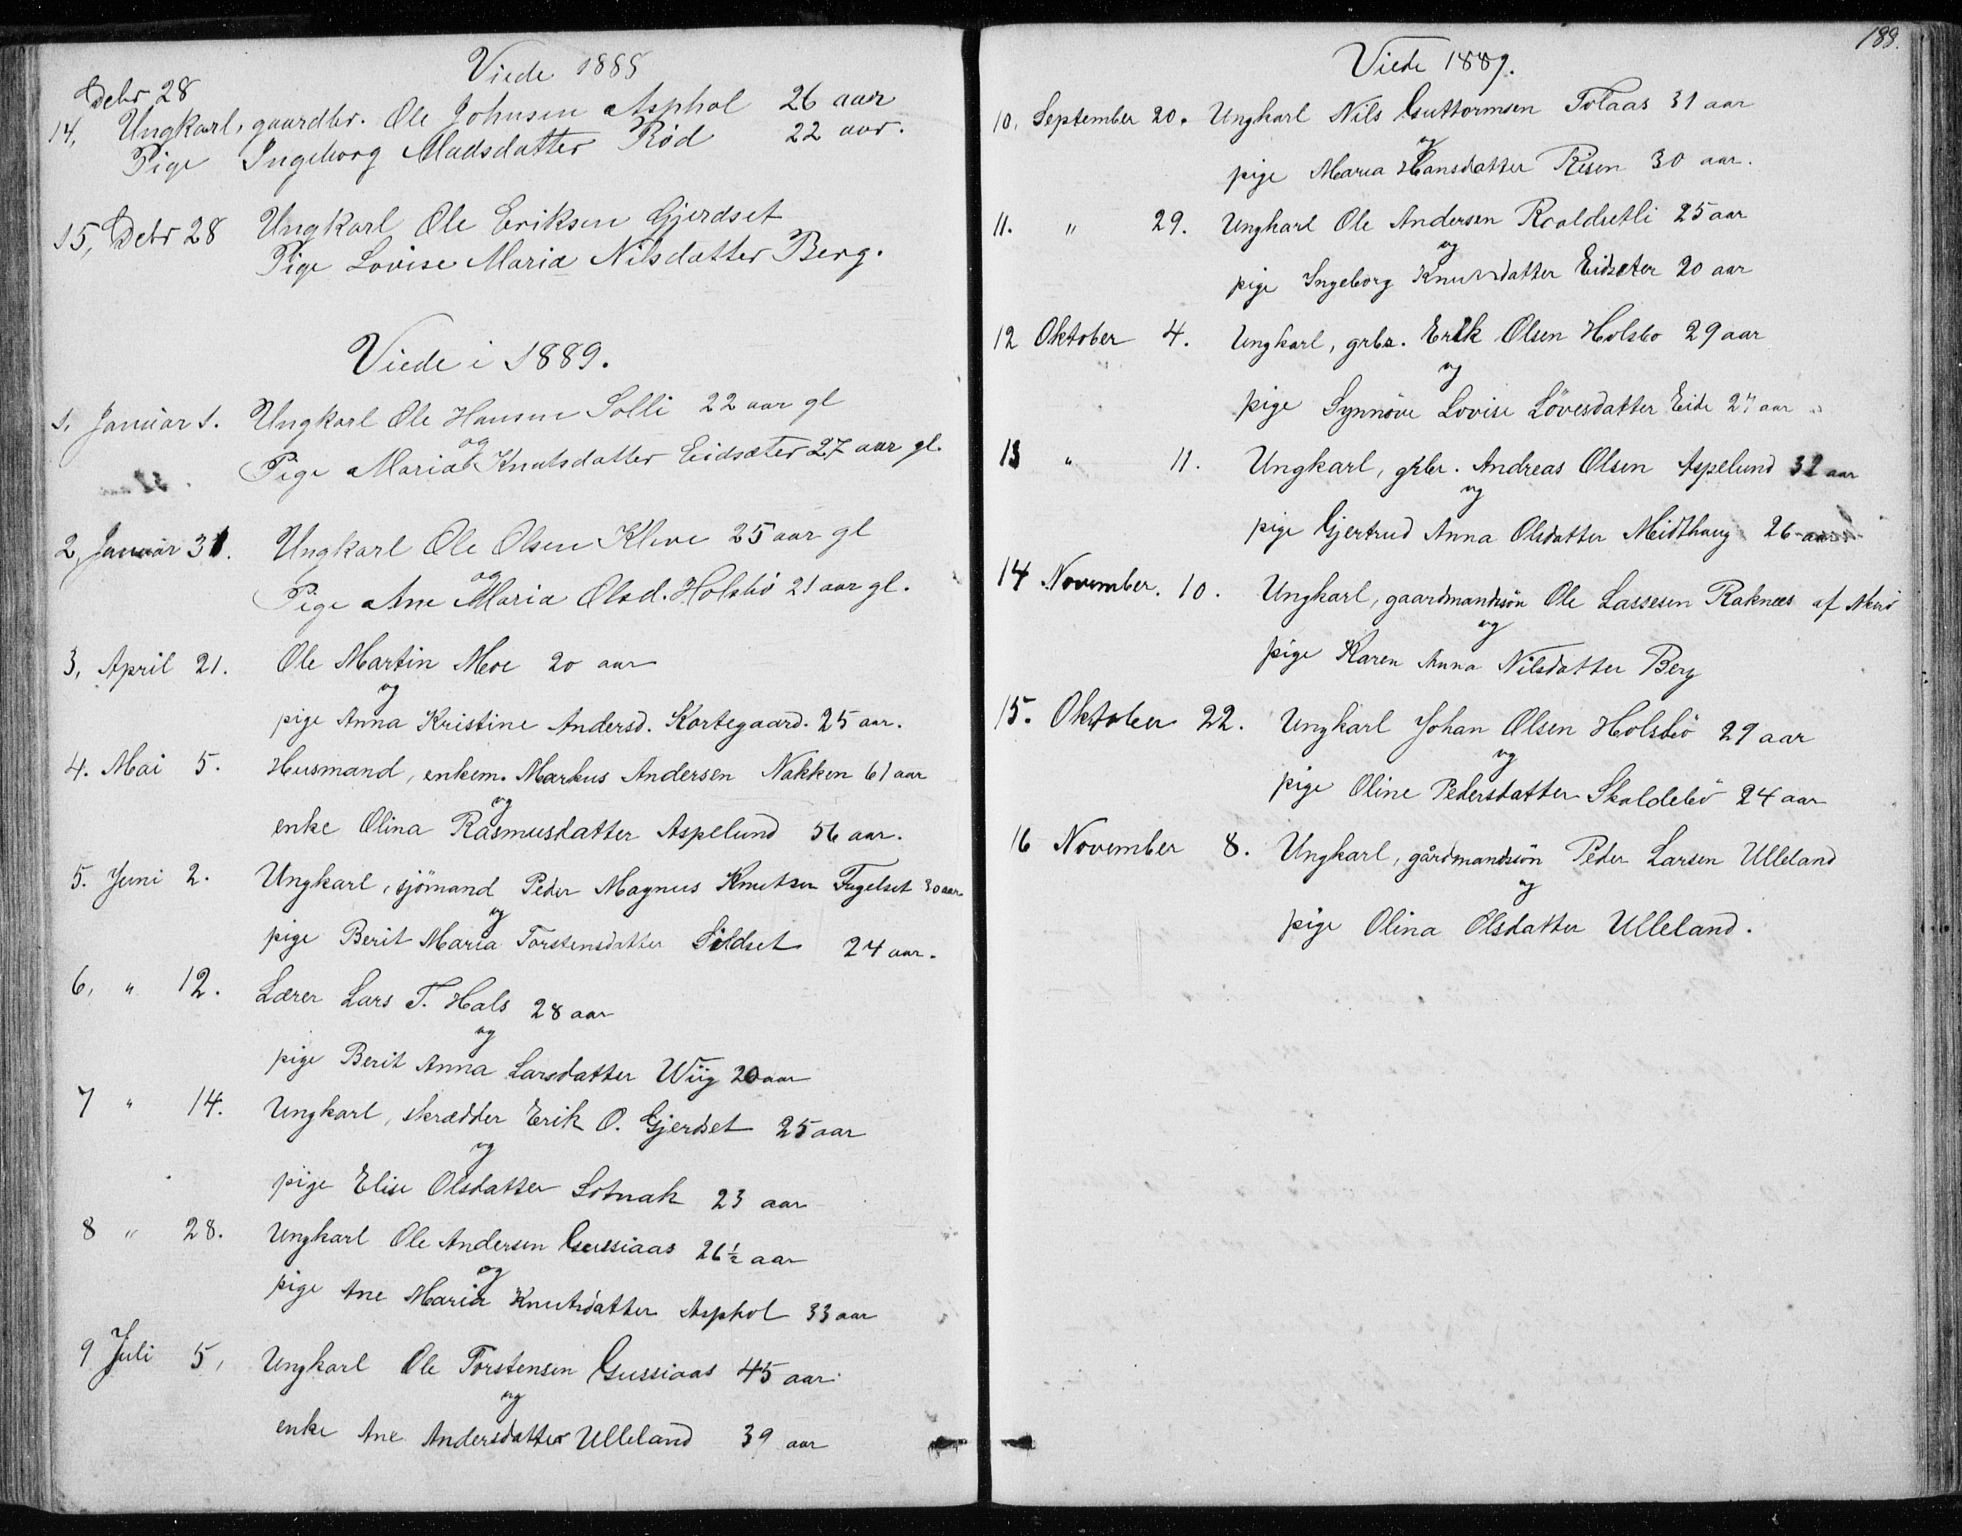 Viede 1888
Debr 28
14, Ungkarl, gaardbr. Ole Johnsen Asphol 26 aar
Pige Ingeborg Madsdatter Rød 22 aar.
15, Debr 28 Ungkarl Ole Eriksen Gjerdset
Pige Lovise Maria Nilsdatter Berg.
Viede i 1889.
1, Januar 1. Ungkarl Ole Hansen Solli 22 aar gl
og
Pige Maria Knutsdatter Eidsæter 27 aar gl.
2, Januar 31. Ungkarl Ole Olsen Kleve 25 aar gl
og
Pige Ane Maria Olsd. Holsbö 21 aar gl.
3, April 21. Ole Martin Moe 20 aar
og
pige Anna Kristine Andersd. Kortegaard. 25 aar.
4. Mai 5. Husmand, enkem. Markus Andersen Nakken 61 aar
og
enke Olina Rasmusdatter Aspelund 56 aar.
5. Juni 2. Ungkarl, sjömand Peder Magnus Knutsen Fugelset 30 aar
og
pige Berit Maria Torstensdatter Sildset 24 aar.
6, " 12. Lærer Lars T. Hals 28 aar
og
pige Berit Anna Larsdatter Wiig 20 aar
7 " 14. Ungkarl, skrædder Erik O. Gjerdset 25 aar
og
pige Elise Olsdatter Sotnak 23 aar
8 " 28. Ungkarl Ole Andersen Gussiaas 26 ½ aar
og
pige Ane Maria Knutsdatter Asphol 33 aar
9 Juli 5, Ungkarl Ole Torstensen Gussiaas 45 aar
og
enke Ane Andersdatter Ulleland 39 aar
189.
Viede 1889.
10, September 20. Ungkarl Nils Guttormsen Tolaas 31 aar
og
pige Maria Hansdatter Risen 30 aar.
11. " 29. Ungkarl Ole Andersen Roaldsetli 25 aar
og
pige Ingeborg Knutsdatter Eidsæter 20 aar
12 Oktober 4. Ungkarl, grbr. Erik Olsen Holsbo 29 aar
og
pige Synnöve Lovise Lövesdatter Eide 27 aar
13 " 11. Ungkarl, grbr. Andreas Olsen Aspelund 32 aar
og
pige Gjertrud Anna Olsdatter Meidthaug 26 aar
14 November. 10. Ungkarl, gaardmandssön Ole Lassesen Raknes af
og
pige Karen Anna Nilsdatter Berg
15. Oktober 22. Ungkarl Johan Olsen Holsbö 29 aar
og
pige Oline Pedersdatter Skoldebö 24 aar
16 November 8. Ungkarl, gårdmandssön Peder Larsen Ulleland
og
pige Olina Olsdatter Ulleland.